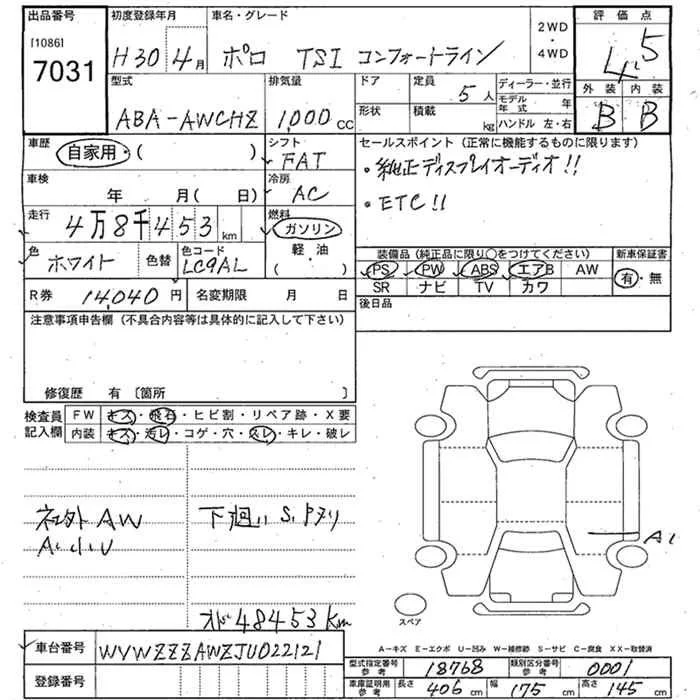 出品番号
[1086]
7031
初度登録年月
H30 4月
車名・グレード
ポロ TSI コンフォートライン
2WD
・
4WD
評価点
4.5
外装 内装
B B
型式
ABA-AWCHZ
排気量
1,000cc
ドア
定員
5人
形状
積載
kg
ディーラー・並行
モデル年式 年
ハンドル 左・右
車歴
自家用・( )
シフト
FAT
セールスポイント (正常に機能するものに限ります)
・純正ディスプレイオーディオ!!
・ETC!!
車検
年 月( 日)
冷房
AC
走行
4万8千453km
燃料
ガソリン
軽・油
( )
色
ホワイト
色替
色コード
LC9AL
装備品(純正品に限り○をつけてください)
新車保証書
PS PW ABS エアB AW
SR ナビ TV カワ
有・無
R券 14,040円
名変期限 月 日
後日品
注意事項申告欄(不具合内容等は具体的に記入して下さい)
修復歴 有〔箇所 〕
検査員
記入欄
FW キズ・飛石・ヒビ割・リペア跡・X要
内装 キズ・汚レ・コゲ・穴・スレ・キレ・破レ
社外AW
A1小U
下廻り S、トヌリ
オドー48453Km
A1
スペア
A-キズ E-エクボ U-凹み W-補修跡 S-サビ C-腐食 XX-取替済
車台番号 WVWZZZAWZJU022121
登録番号
型式指定番号
参考
18768
類別区分番号
参考
0001
車庫証明用
参考
長さ 406cm 幅 175cm 高さ 145cm